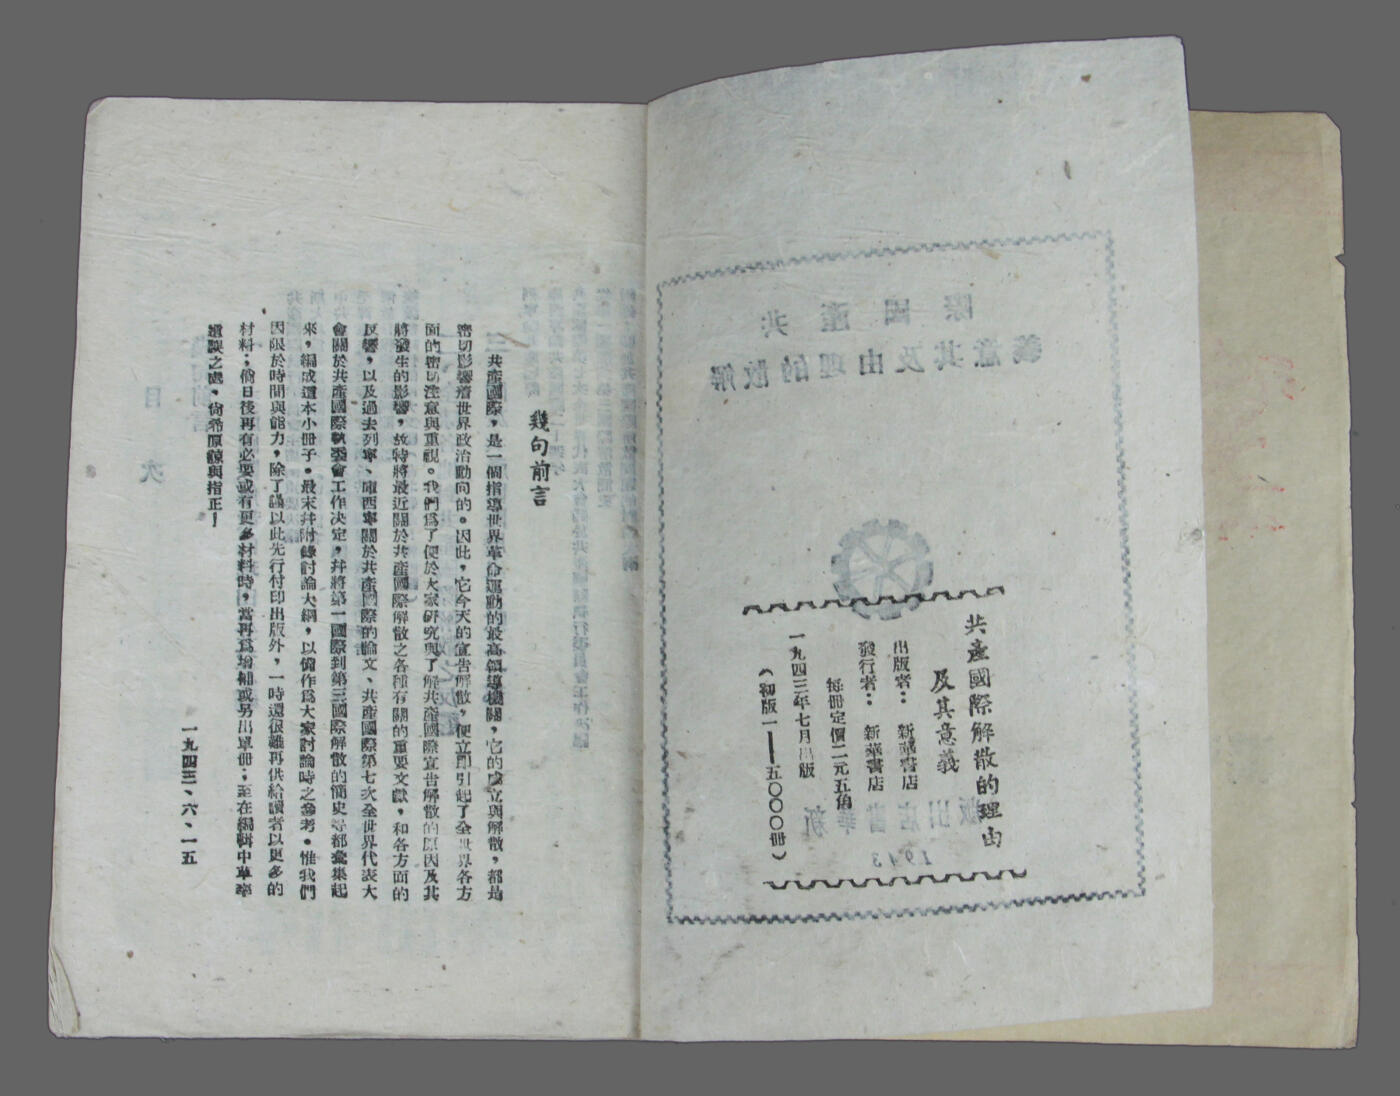 共產國際解散的理由
及其意義
出版者：新華書店
發行者：新華書店
每冊定價二元五角
一九四三年七月出版
（初版一——五〇〇〇冊）
幾句前言
共產國際，是一個指導世界革命運動的最高領導機關，它的成立與解散，都是
密切影響着世界政治動向的。因此，它今天的宣告解散，便立即引起了全世界各方
面的密切注意與重視。我們爲了便於大家研究與了解共產國際宣告解散的原因及其
將發生的影響，故特將最近關於共產國際解散之各種有關的重要文獻，和各方面的
反響，以及過去列寧、庫西寧關於共產國際的論文、共產國際第七次全世界代表大
會關於共產國際執委會工作決定，并將第一國際到第三國際解散的簡史等都彙集起
來，編成這本小冊子。最末并附錄討論大綱，以備作爲大家討論時之參考。惟我們
因限於時間與能力，除了謹以此先行付印出版外，一時還很難再供給讀者以更多的
材料；倘日後再有必要或有更多材料時，當再爲增補或另出單冊；至在編輯中草率
遺誤之處，尙希原諒與指正！
一九四三、六、一五
共產國際
解散的理由及其意義
新華書店出版
1943
目次